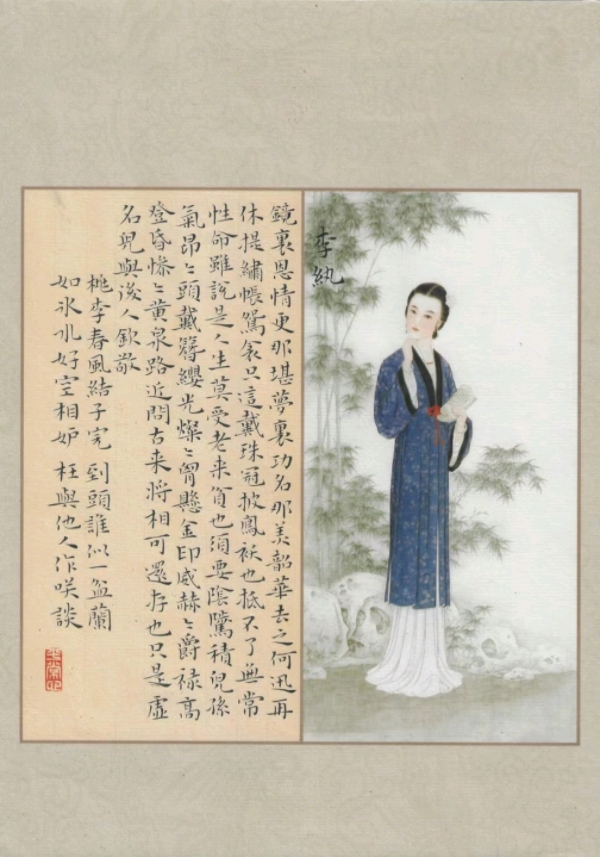 李紈
鏡裏恩情更那堪夢裏功名那美韶華去之何迅再
休提繡帳鴛衾只這戴珠冠披鳳袄也抵不了無常
性命雖說是人生莫受老来貧也須要陰騭積兒孫
氣昂〻頭戴簪纓光燦〻胷懸金印威赫〻爵禄高
登昏惨〻黄泉路近問古来將相可還存也只是虚
名兒與後人欽敬
桃李春風結子完 到頭誰似一盆蘭
如冰水好空相妒 枉與他人作咲談